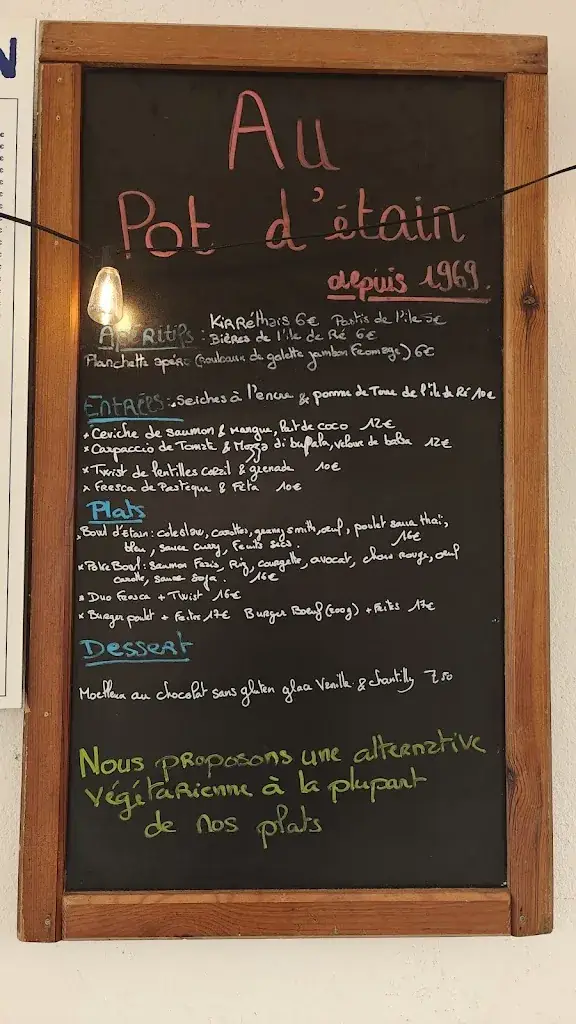 N
Au
Pot d'étain
depuis 1969.
Kir Réthais 6€ Pastis de l'île 5€
Apéritifs : Bières de l'île de Ré 6€
Planchette apéro (rouleaux de galette jambon fromage) 6€
Entrées : Seiches à l'encre & pomme de Terre de l'île de Ré 10€
* Ceviche de saumon & mangue, lait de coco 12€
* Carpaccio de Tomate & Mozza di bufala, velours de balsa 12€
* Twist de lentilles corail & grenade 10€
* Fresca de Pastèque & Féta 10€
Plats
Bowl d'étain : coleslaw, carottes, granny smith, œuf, poulet sauce thaï,
bleu, sauce curry, fruits secs. 16€
* Poke Bowl : saumon, Riz, courgette, avocat, chou rouge, œuf
carotte, sauce soja. 16€
* Duo Fresca + Twist 16€
* Burger poulet + Frites 17€ Burger Bœuf (200g) + Frites 17€
Dessert
Moelleux au chocolat sans gluten glace Vanille & chantilly 7,50
Nous proposons une alternative
végétarienne à la plupart
de nos plats